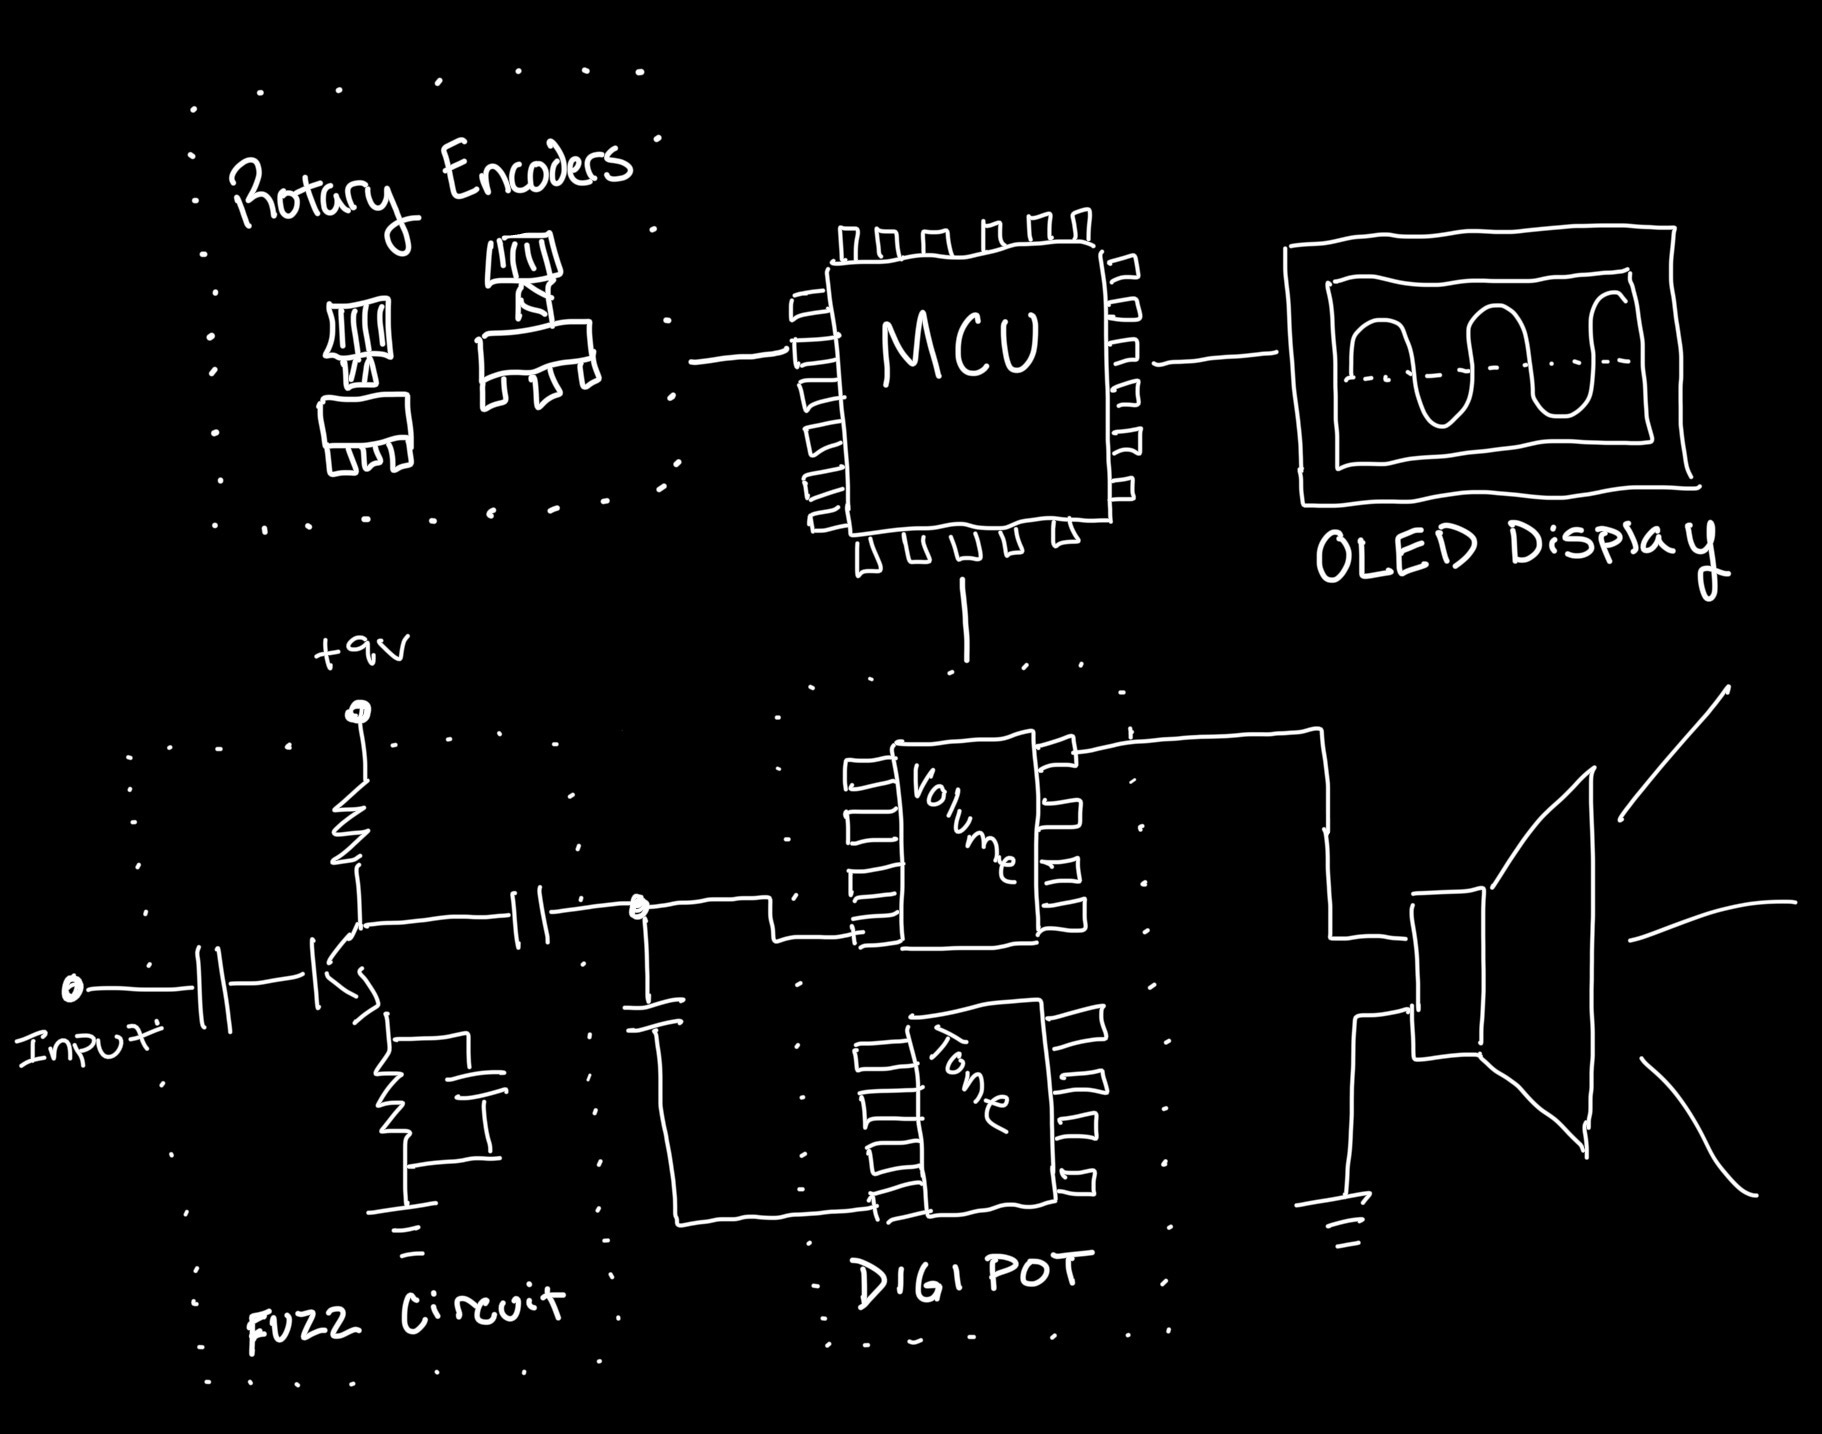 Rotary Encoders
MCU
OLED Display
+9V
Volume
Input
Tone
DIGI POT
FUZZ Circuit